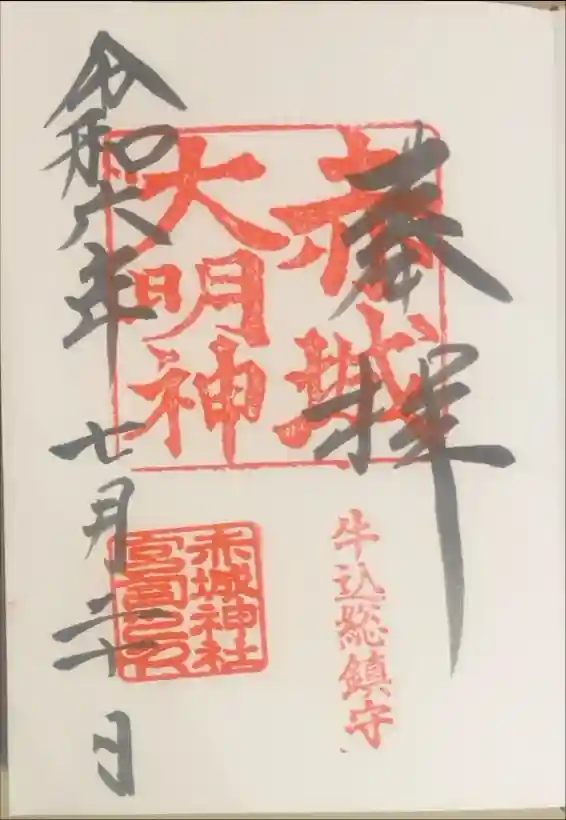 奉拝
牛込総鎮守
赤城
大明神
赤城神社
令和六年七月二十日